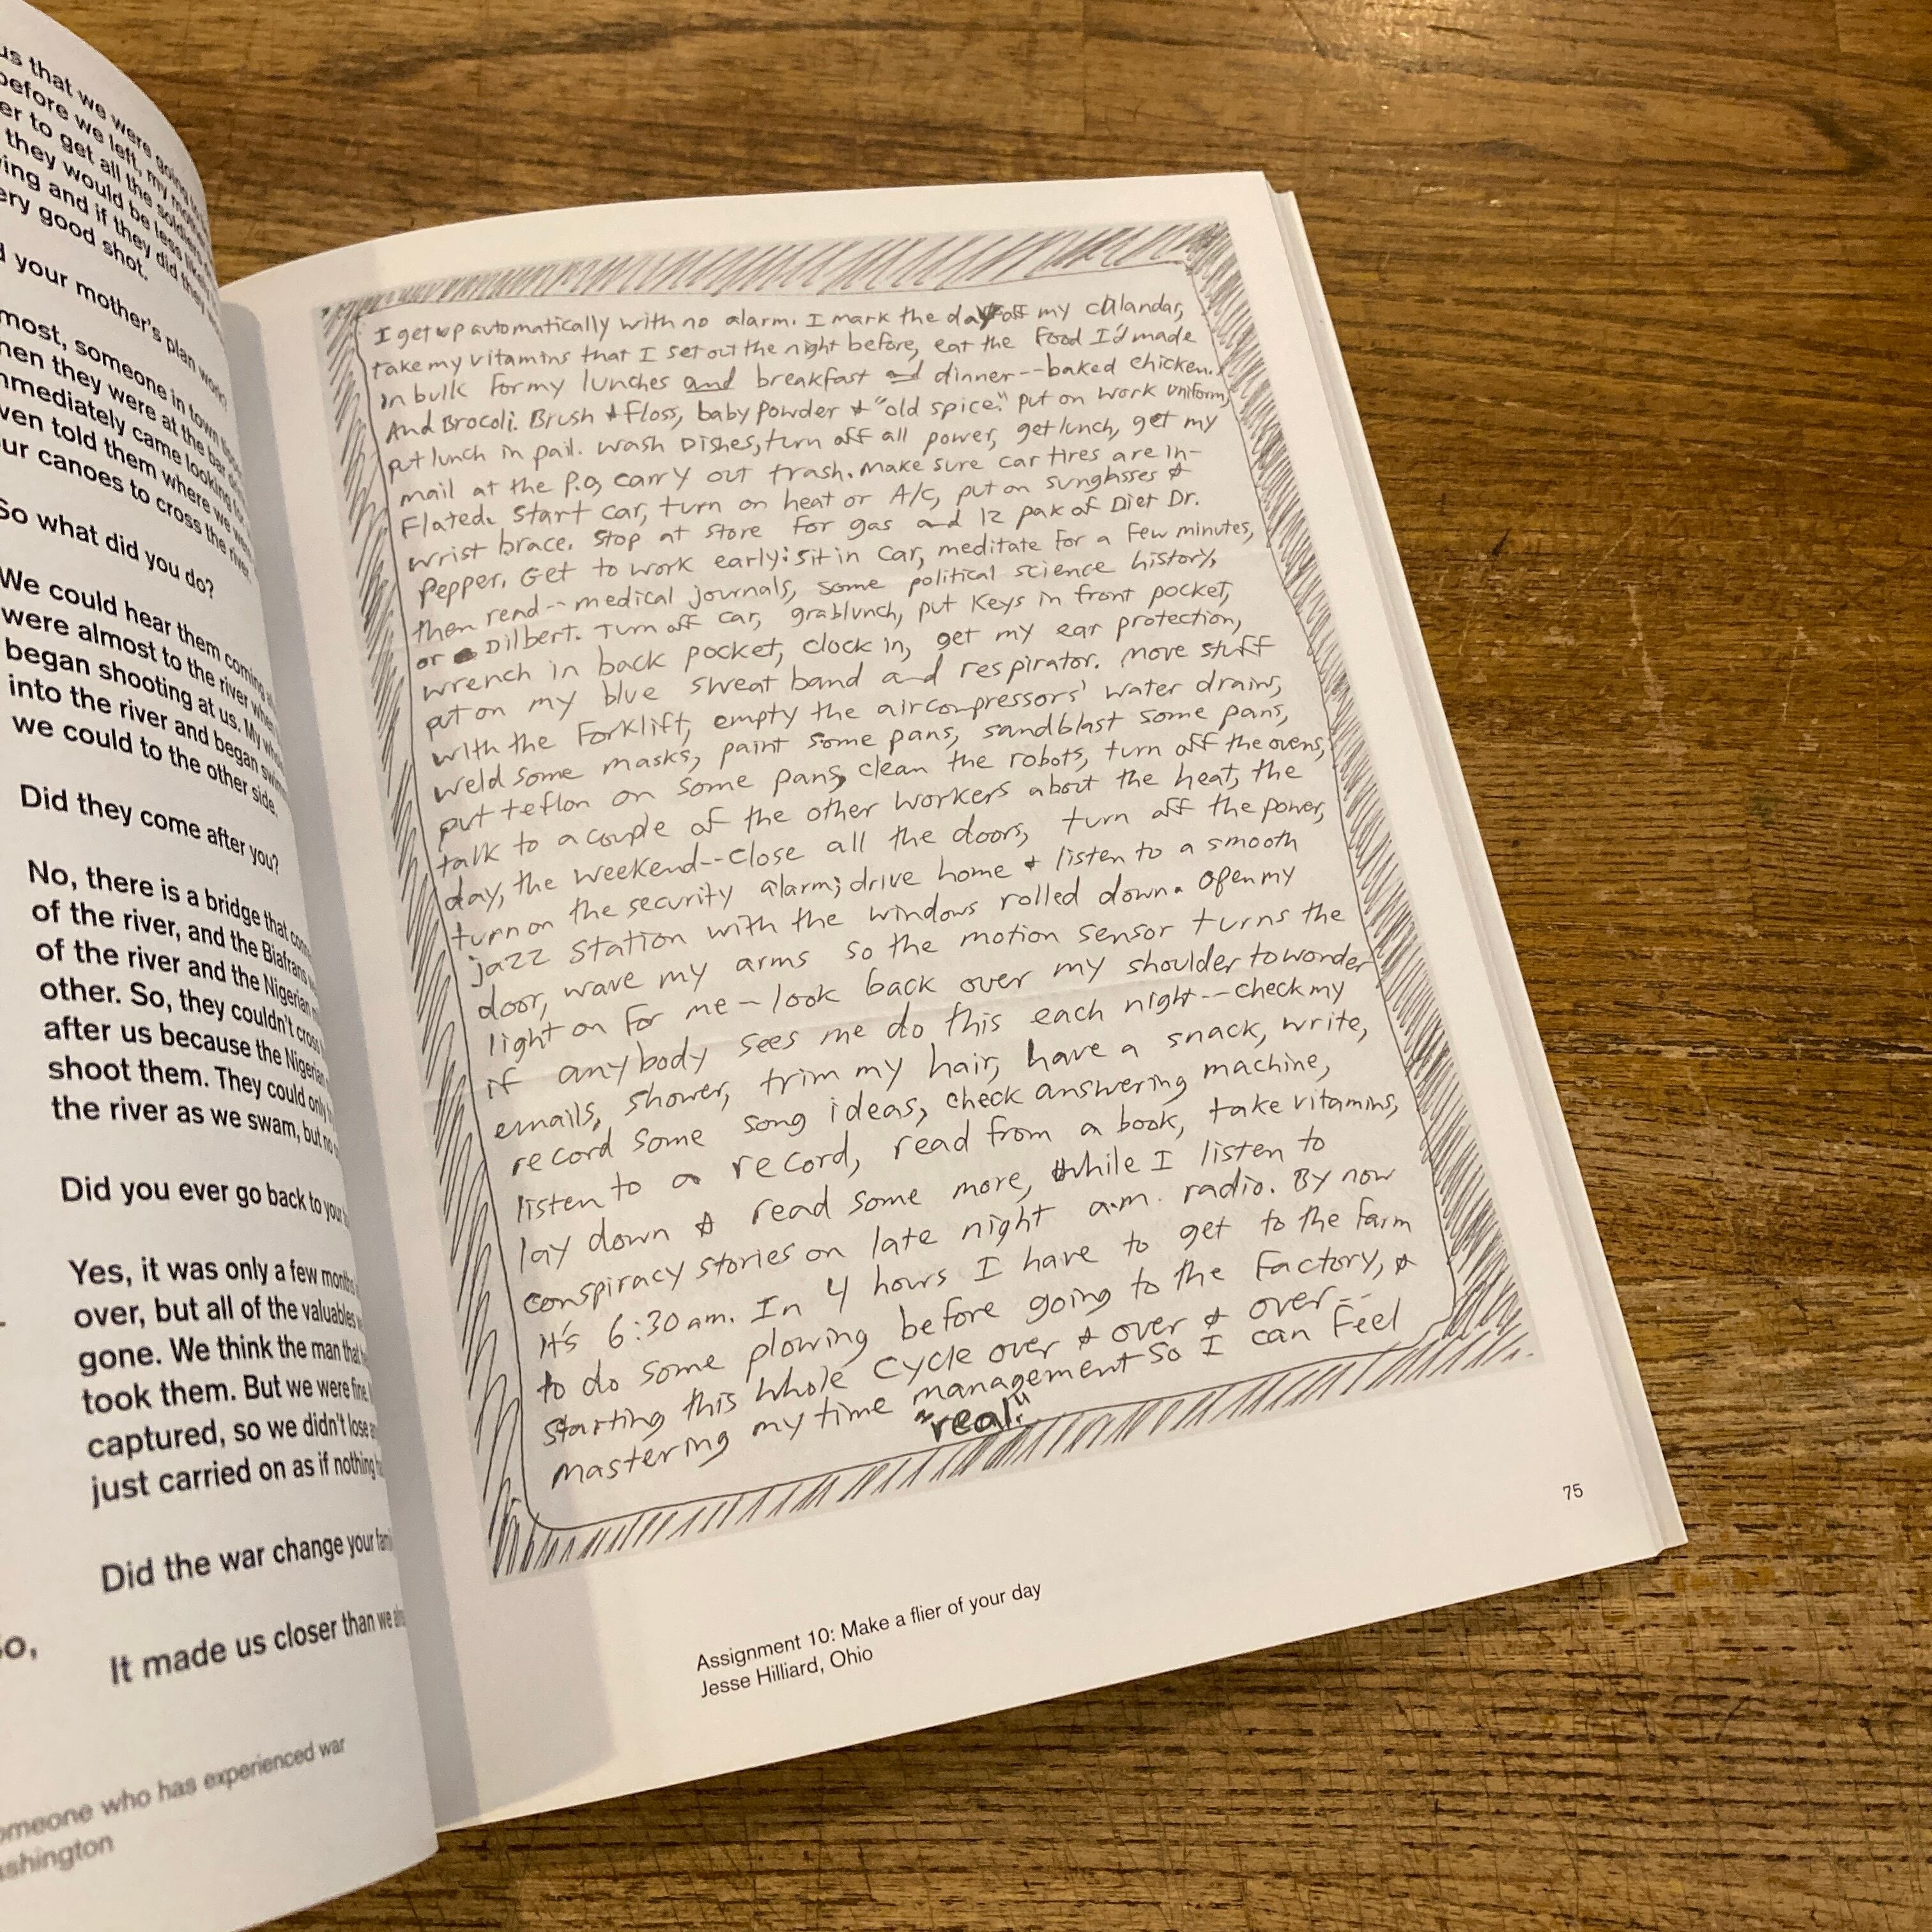 us that we were going
before we left, my mother
er to get all the soldiers
they would be less likely
ving and if they did they
ery good shot.
d your mother's plan work?
most, someone in town
hen they were at the bar
mmediately came looking for
ven told them where we
ur canoes to cross the river.
So what did you do?
We could hear them coming
were almost to the river when
began shooting at us. My whole
into the river and began
we could to the other side.
Did they come after you?
No, there is a bridge that
of the river, and the Biafrans
of the river and the Nigerian
other. So, they couldn't cross
after us because the Nigerian
shoot them. They could only
the river as we swam, but no
Did you ever go back to your
Yes, it was only a few months
over, but all of the valuables
gone. We think the man that
took them. But we were fine.
captured, so we didn't lose
just carried on as if nothing
Did the war change your
It made us closer than we
so,
omeone who has experienced war
ashington
I get up automatically with no alarm. I mark the day off my calandar,
take my vitamins that I set out the night before, eat the food I'd made
in bulk for my lunches and breakfast and dinner--baked chicken.
And Brocoli. Brush & floss, baby powder & "old spice." put on work uniform,
put lunch in pail. wash Dishes, turn off all power, get lunch, get my
mail at the P.O, carry out trash. Make sure car tires are in-
Flated. Start car, turn on heat or A/C, put on sunglasses &
wrist brace. Stop at store for gas and 12 pak of Diet Dr.
Pepper. Get to work early: sit in car, meditate for a few minutes,
then read -- medical journals, some political science history,
or Dilbert. Turn off car, grab lunch, put Keys in front pocket,
wrench in back pocket, clock in, get my ear protection,
put on my blue sweat band and respirator. Move stuff
with the Forklift, empty the aircompressors' water drains,
weld some masks, paint some pans, sandblast some pans,
put teflon on some pans, clean the robots, turn off the ovens,
talk to a couple of the other workers about the heat, the
day, the weekend--close all the doors, turn off the power,
turn on the security alarm; drive home & listen to a smooth
jazz station with the windows rolled down. Open my
door, wave my arms so the motion sensor turns the
light on for me - look back over my shoulder to wonder
if anybody sees me do this each night -- check my
emails, shower, trim my hair, have a snack, write,
record some song ideas, check answering machine,
listen to a record, read from a book, take vitamins,
lay down & read some more, while I listen to
conspiracy stories on late night a.m. radio. By now
it's 6:30 am. In 4 hours I have to get to the farm
to do some plowing before going to the factory, &
starting this whole cycle over & over & over --
mastering my time management so I can feel
"real."
75
Assignment 10: Make a flier of your day
Jesse Hilliard, Ohio